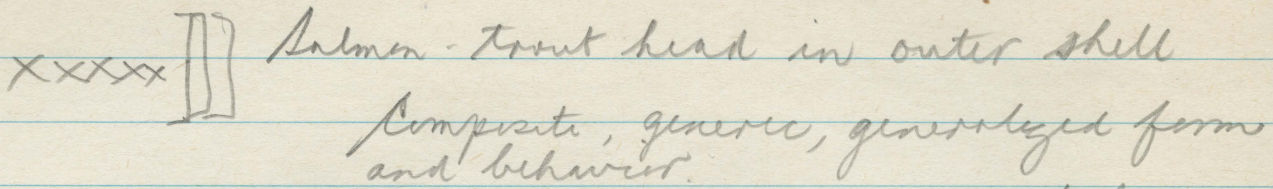 xxxxx II Salmon-trout head in outer shell
Composite, generic, generalized form
and behavior.